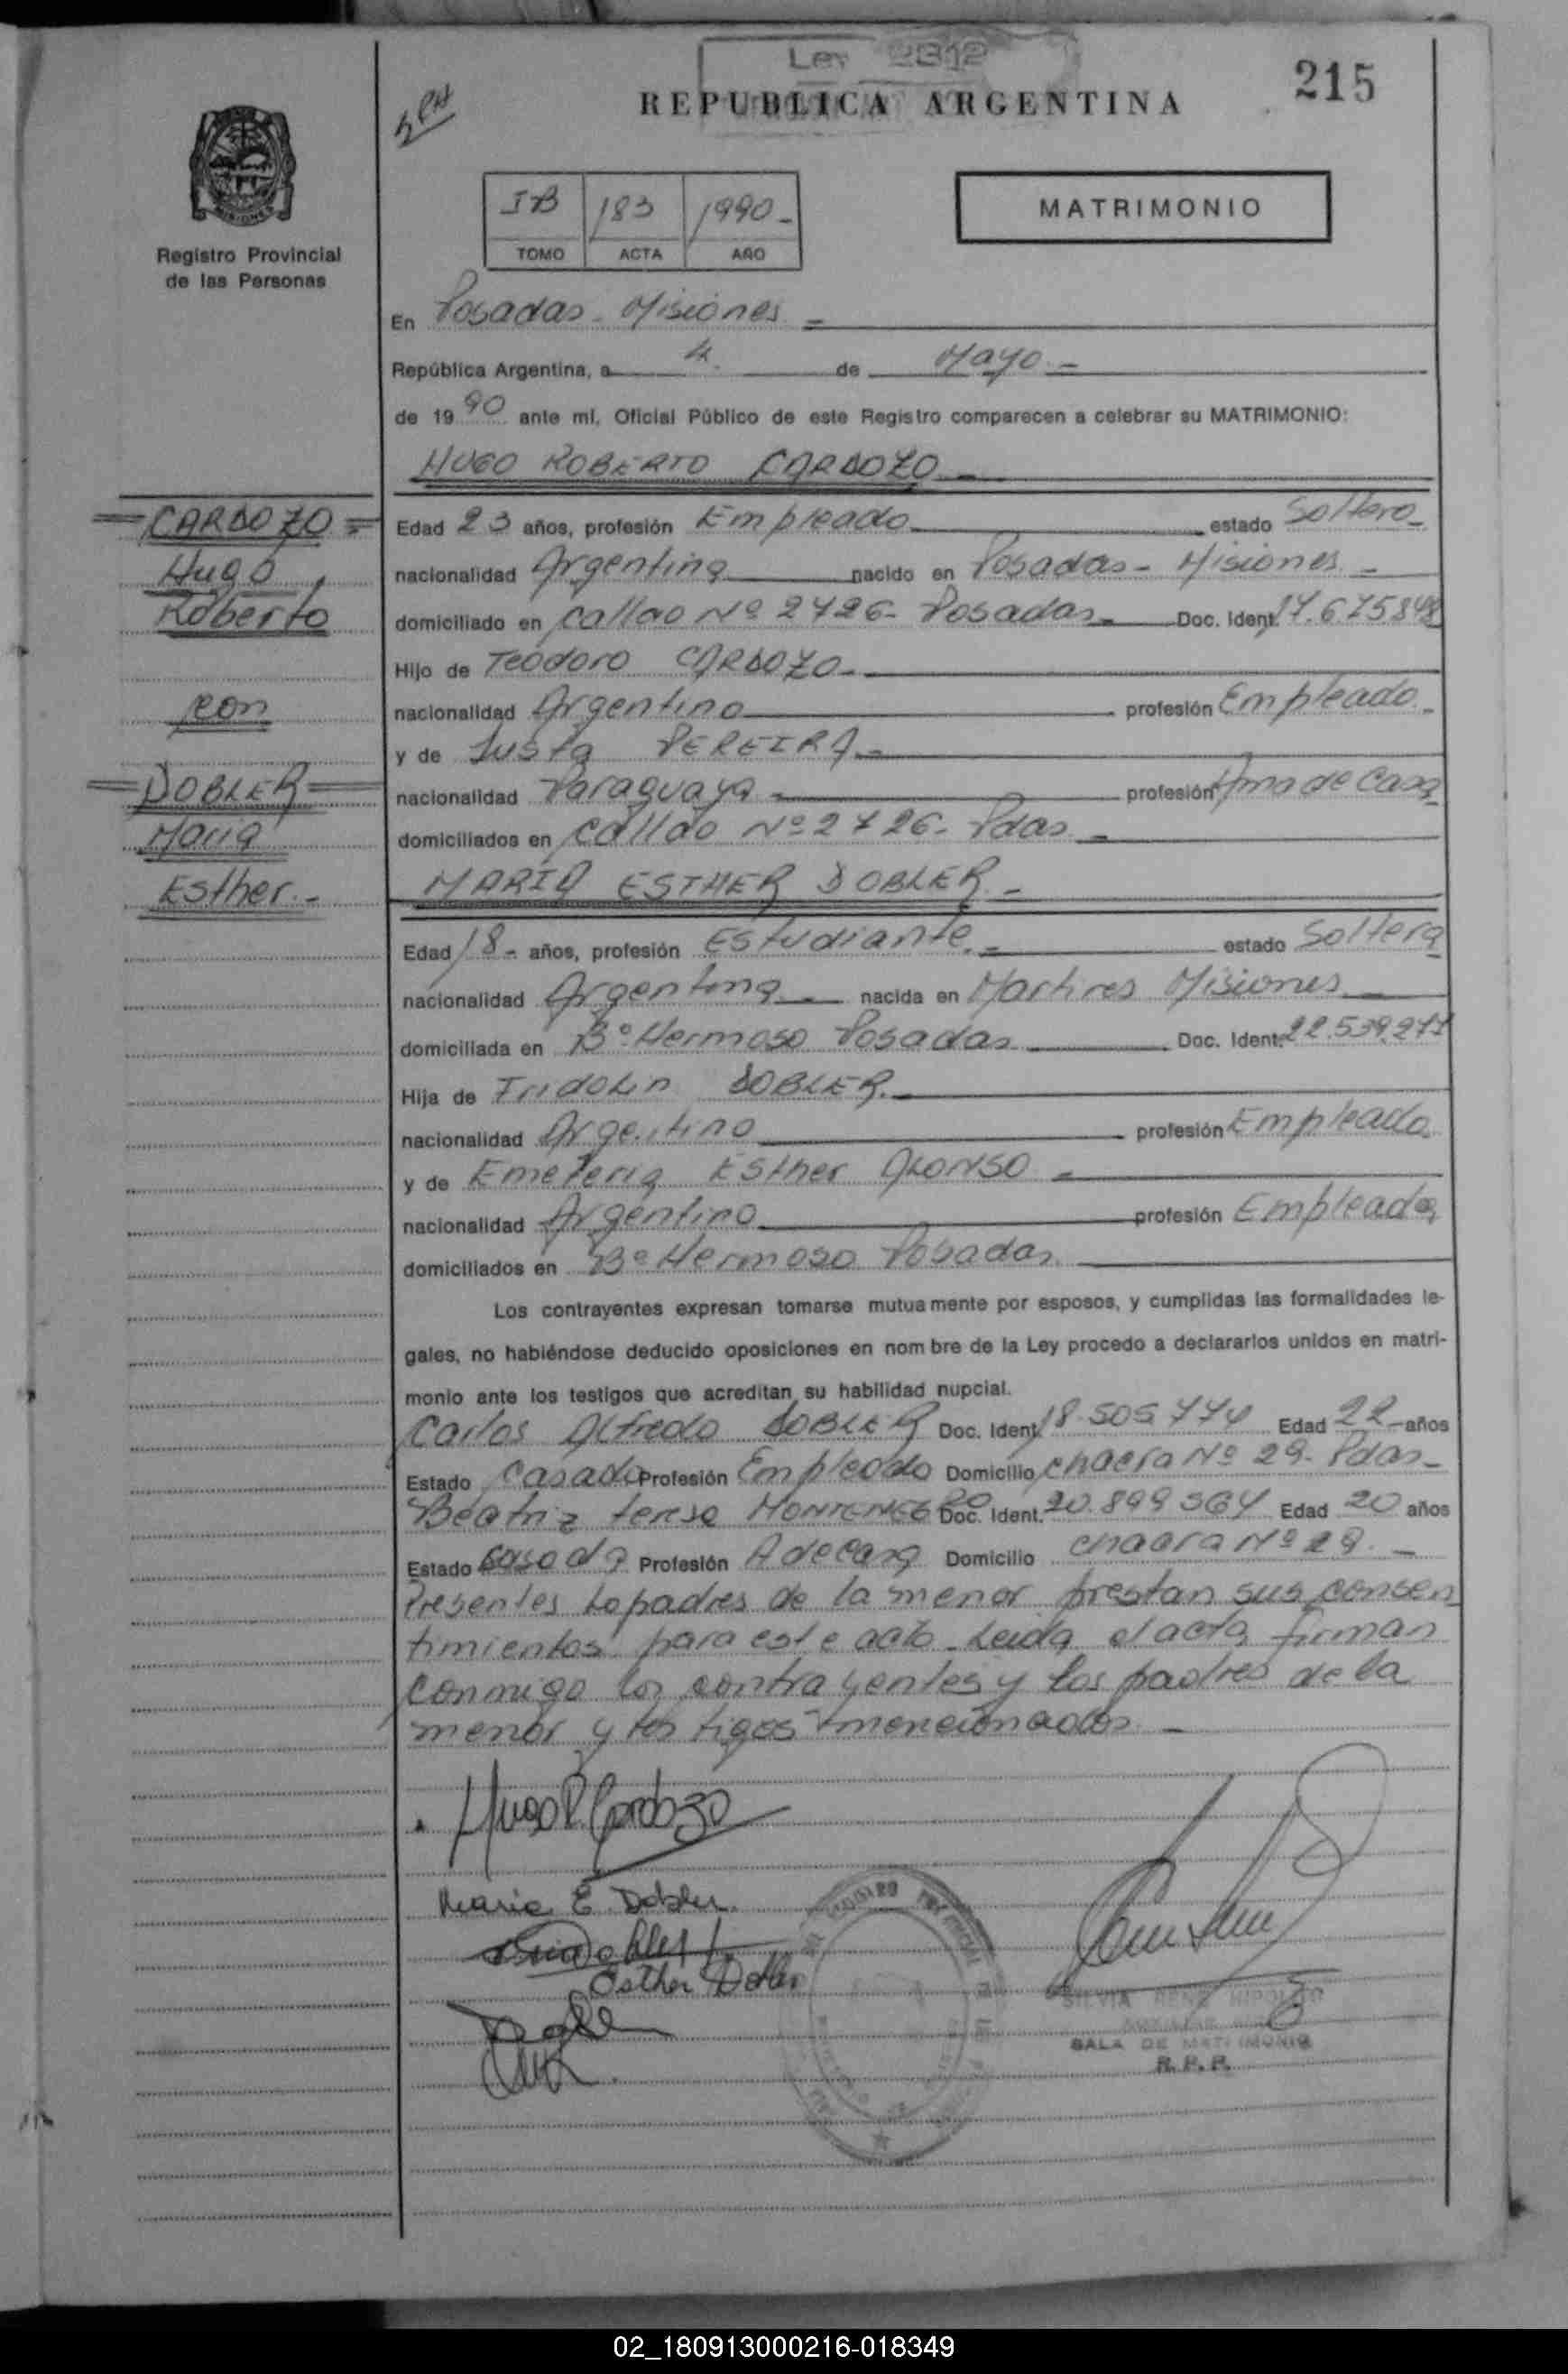 Ley 2312
215
REPUBLICA ARGENTINA
MISIONES
Registro Provincial
de las Personas
IB 183 1990-
TOMO ACTA AÑO
MATRIMONIO
En Posadas - Misiones -
República Argentina, a 4 de Mayo -
de 1990 ante mí, Oficial Público de este Registro comparecen a celebrar su MATRIMONIO:
HUGO ROBERTO CARDOZO -
=CARDOZO=
Hugo
Roberto
con
=DOBLER=
Maria
Esther.-
Edad 23 años, profesión Empleado estado Soltero-
nacionalidad Argentina nacido en Posadas - Misiones -
domiciliado en Callao Nº 2726- Posadas- Doc. Ident. 17.675.848
Hijo de Teodoro CARDOZO-
nacionalidad Argentino profesión Empleado-
y de Justa PEREIRA-
nacionalidad Paraguaya - profesión Ama de Casa-
domiciliados en Callao Nº 2726- Pdas -
MARIA ESTHER DOBLER -
Edad 18- años, profesión Estudiante - estado Soltera
nacionalidad Argentina nacida en Martires Misiones
domiciliada en Bº Hermoso Posadas Doc. Ident. 22.539.277
Hija de Fridolin DOBLER.-
nacionalidad Argentino profesión Empleado
y de Emeteria Esther ALONSO -
nacionalidad Argentino profesión Empleada
domiciliados en Bº Hermoso Posadas
Los contrayentes expresan tomarse mutuamente por esposos, y cumplidas las formalidades le-
gales, no habiéndose deducido oposiciones en nombre de la Ley procedo a declararlos unidos en matri-
monio ante los testigos que acreditan su habilidad nupcial.
Carlos Alfredo DOBLER Doc. Ident. 18.505774 Edad 22 años
Estado Casado Profesión Empleado Domicilio chacra Nº 29- Pdas-
Beatriz teresa MONTENEGRO Doc. Ident. 20.899364 Edad 20 años
Estado Casada Profesión A de Casa Domicilio chacra Nº 29. -
Presentes lo padres de la menor prestan sus consen
timientos para este acto. Leida el acta firman
conmigo los contrayentes y los padres de la
menor y tes tigos mencionados. -
Hugo R. Cardozo
Maria E. Dobler.
Esther Dobler
SILVIA RENE HIPOLITO
SALA DE MATRIMONIO
R. P. P.
02_180913000216-018349